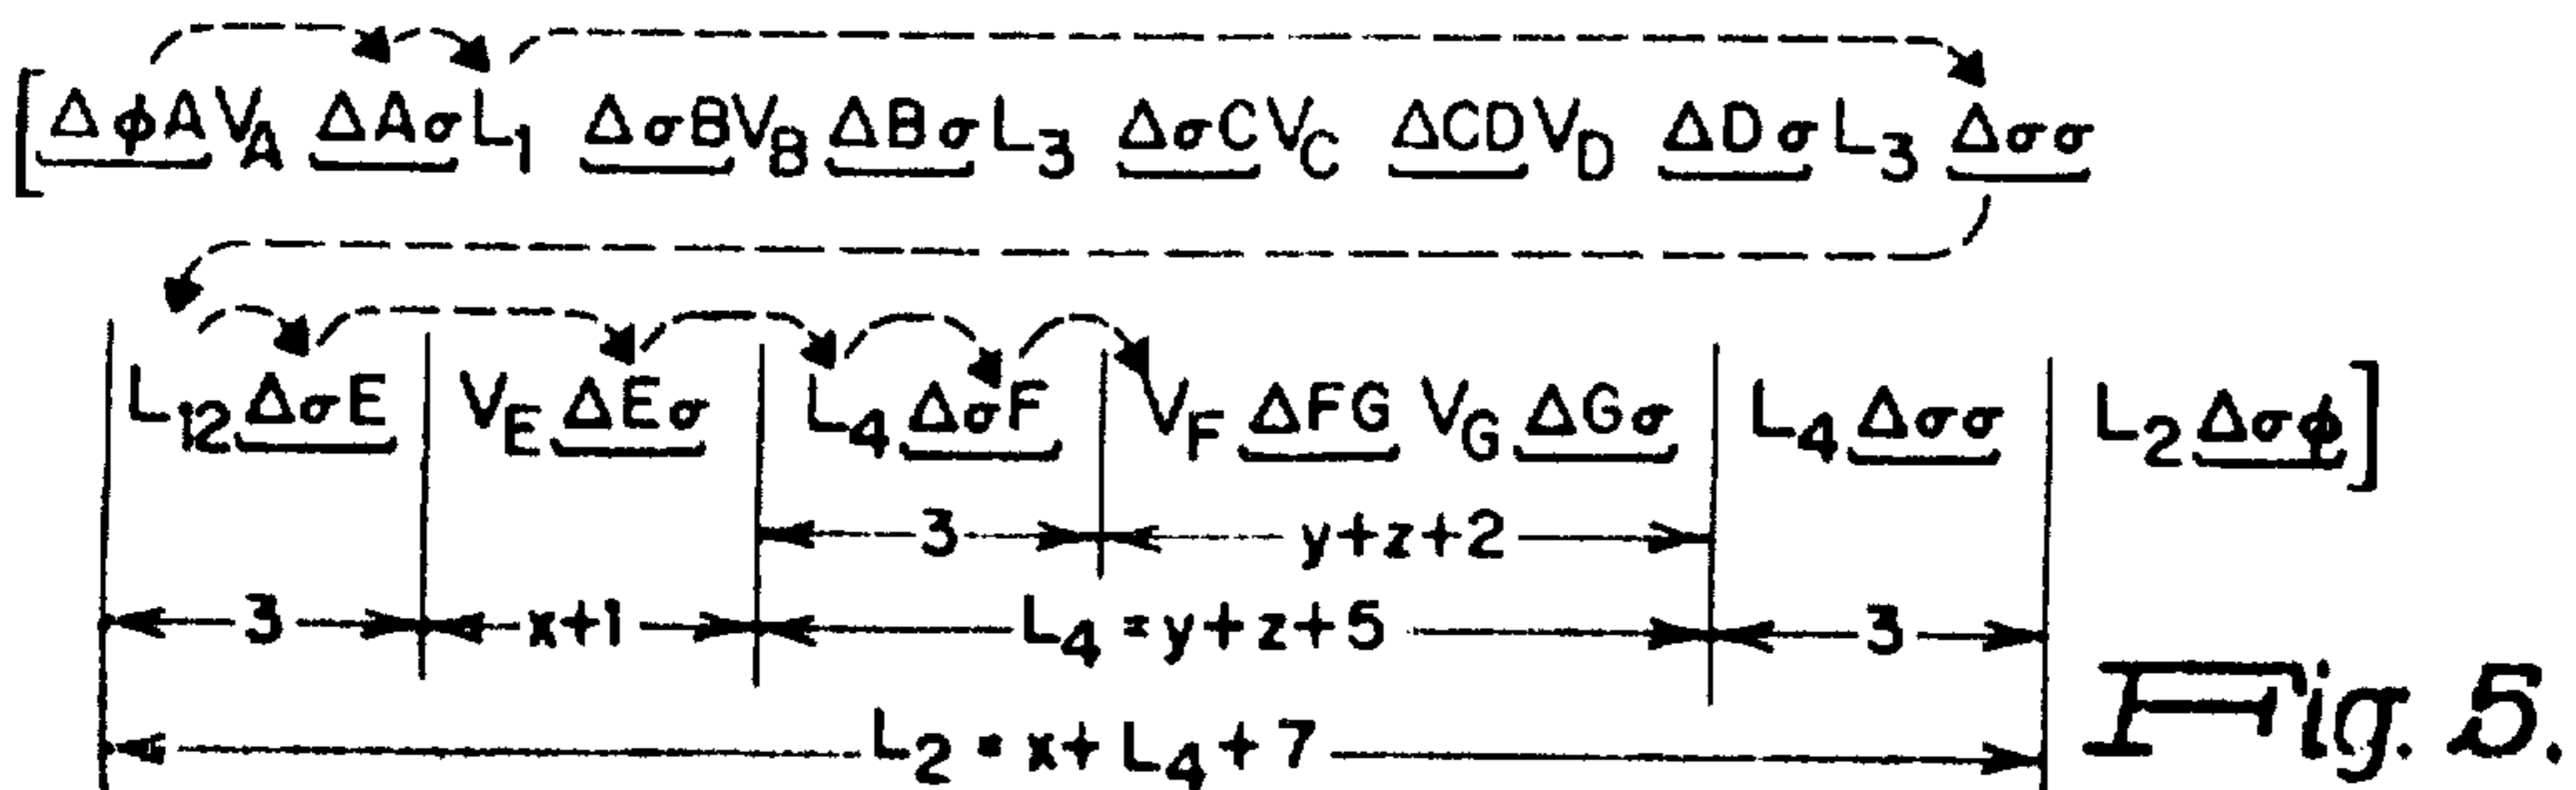 [ΔϕA V_A ΔAσ L_1 ΔσB V_B ΔBσ L_3 ΔσC V_C ΔCD V_D ΔDσ L_3 Δσσ
L_12 ΔσE V_E ΔEσ L_4 ΔσF V_F ΔFG V_G ΔGσ L_4 Δσσ L_2 Δσϕ]
3 y+z+2
3 x+1 L_4 = y+z+5 3
L_2 = x+L_4+7
Fig. 5.